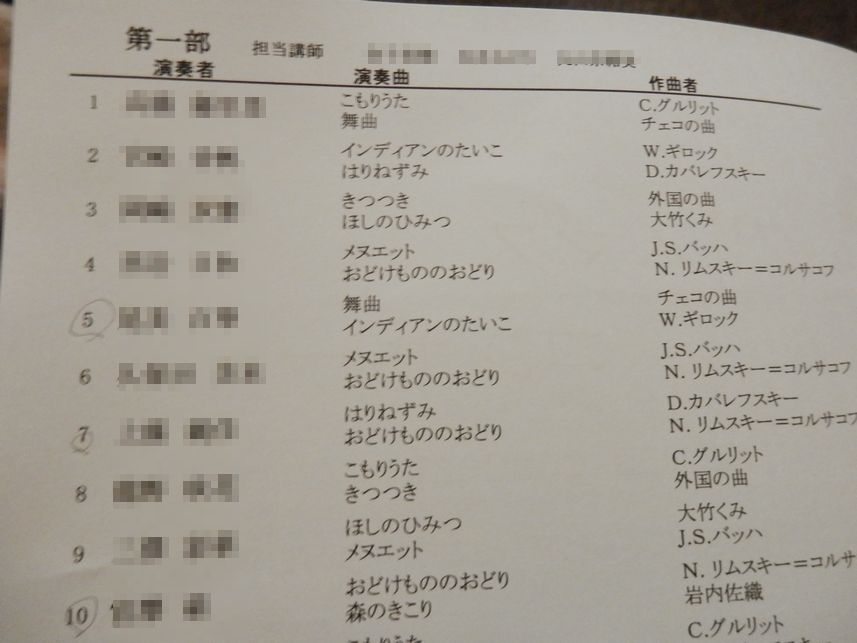 第一部 担当講師
演奏者 演奏曲 作曲者
1 こもりうた C.グルリット
舞曲 チェコの曲
2 インディアンのたいこ W.ギロック
はりねずみ D.カバレフスキー
3 きつつき 外国の曲
ほしのひみつ 大竹くみ
4 メヌエット J.S.バッハ
おどけもののおどり N. リムスキー=コルサコフ
5 舞曲 チェコの曲
インディアンのたいこ W.ギロック
6 メヌエット J.S.バッハ
おどけもののおどり N. リムスキー=コルサコフ
7 はりねずみ D.カバレフスキー
おどけもののおどり N. リムスキー=コルサコフ
8 こもりうた C.グルリット
きつつき 外国の曲
9 ほしのひみつ 大竹くみ
メヌエット J.S.バッハ
10 おどけもののおどり N. リムスキー=コルサ
森のきこり 岩内佐織
こもりうた C.グルリット